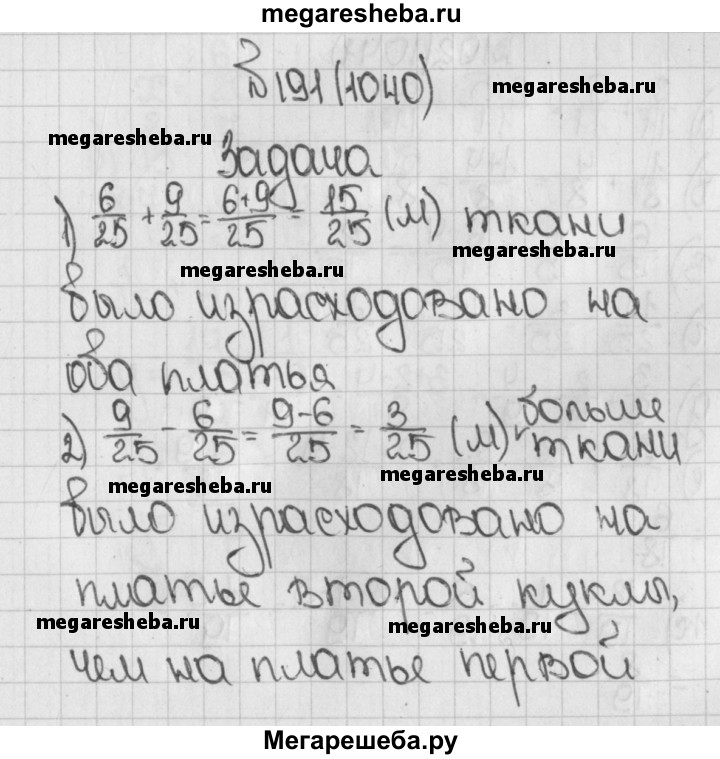 megaresheba.ru
№191(1040)
megaresheba.ru
megaresheba.ru
Задача
1) 6/25 + 9/25 = 6+9/25 = 15/25 (м) ткани
megaresheba.ru
megaresheba.ru
было израсходовано на
оба платья
2) 9/25 - 6/25 = 9-6/25 = 3/25 (м) больше
ткани
megaresheba.ru
megaresheba.ru
было израсходовано на
платье второй куклы,
megaresheba.ru
megaresheba.ru
чем на платье первой
Мегарешеба.ру